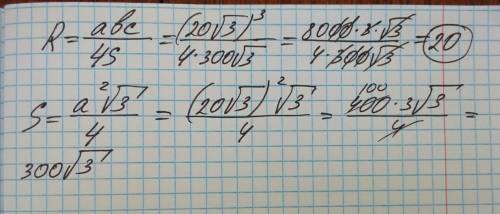 R = abc/4S = (20√3)³/4·300√3 = 8000·3·√3/4·300√3 = 20
S = a²√3/4 = (20√3)²√3/4 = 100 400·3√3/4 =
300√3